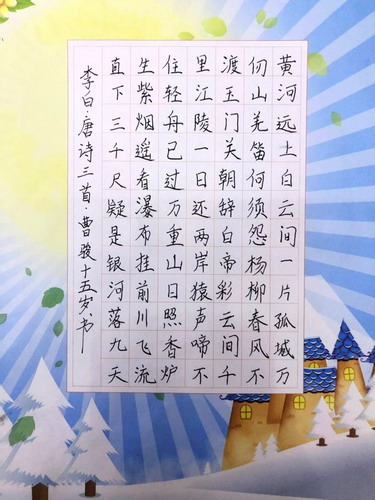 黄河远上白云间一片孤城万
仞山羌笛何须怨杨柳春风不
渡玉门关朝辞白帝彩云间千
里江陵一日还两岸猿声啼不
住轻舟已过万重山日照香炉
生紫烟遥看瀑布挂前川飞流
直下三千尺疑是银河落九天
李白·唐诗三首·曹骏十五岁书